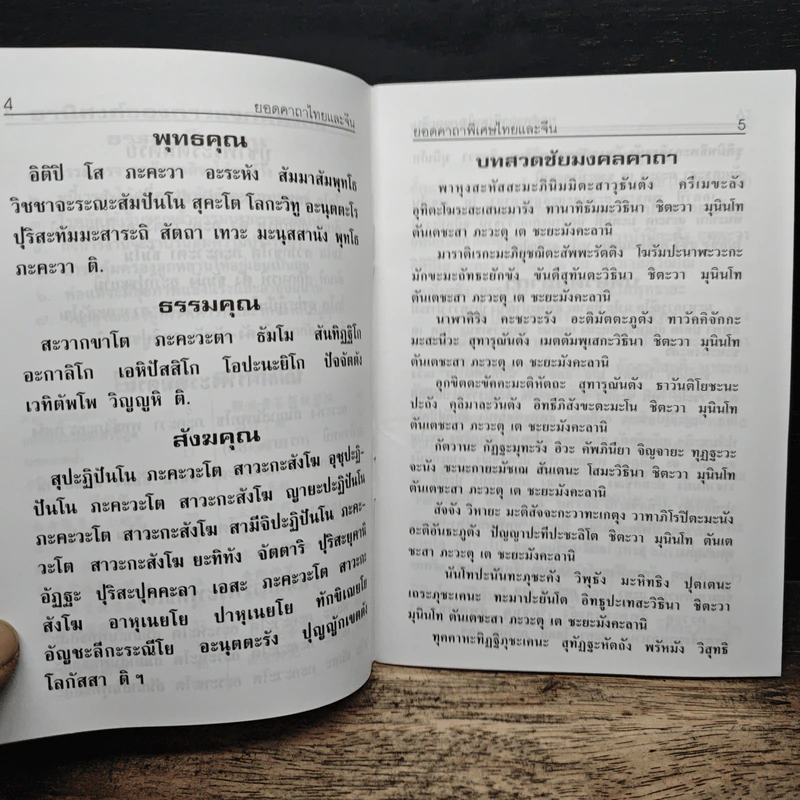 4
ยอดคาถาไทยและจีน
พุทธคุณ
อิติปิ โส ภะคะวา อะระหัง สัมมาสัมพุทโธ
วิชชาจะระณะสัมปันโน สุคะโต โลกะวิทู อะนุตตะโร
ปุริสะทัมมะสาระถิ สัตถา เทวะ มะนุสสานัง พุทโธ
ภะคะวา ติ.
ธรรมคุณ
สะวากขาโต ภะคะวะตา ธัมโม สันทิฏฐิโก
อะกาลิโก เอหิปัสสิโก โอปะนะยิโก ปัจจัตตัง
เวทิตัพโพ วิญญูหิ ติ.
สังฆคุณ
สุปะฏิปันโน ภะคะวะโต สาวะกะสังโฆ อุชุปะฏิ-
ปันโน ภะคะวะโต สาวะกะสังโฆ ญายะปะฏิปันโน
ภะคะวะโต สาวะกะสังโฆ สามีจิปะฏิปันโน ภะคะ-
วะโต สาวะกะสังโฆ ยะทิทัง จัตตาริ ปุริสะยุคานิ
อัฏฐะ ปุริสะปุคคะลา เอสะ ภะคะวะโต สาวะกะ
สังโฆ อาหุเนยโย ปาหุเนยโย ทักขิเณยโย
อัญชะลีกะระณีโย อะนุตตะรัง ปุญญักเขตตัง
โลกัสสา ติ ฯ
ยอดคาถาพิเศษไทยและจีน
5
บทสวดชัยมงคลคาถา
พาหุงสะหัสสะมะภินิมมิตะสาวุธันตัง ครีเมขะลัง
อุทิตะโฆระสะเสนะมารัง ทานาทิธัมมะวิธินา ชิตะวา มุนินโท
ตันเตชะสา ภะวะตุ เต ชะยะมังคะลานิ
มาราติเรกะมะภิยุชฌิตะสัพพะรัตติง โฆรัมปะนาฬะวะกะ
มักขะมะถัทธะยักขัง ขันตีสุทันตะวิธินา ชิตะวา มุนินโท
ตันเตชะสา ภะวะตุ เต ชะยะมังคะลานิ
นาฬาคิริง คะชะวะรัง อะติมัตตะภูตัง ทาวัคคิจักกะ
มะสะนีวะ สุทารุณันตัง เมตตัมพุเสกะวิธินา ชิตะวา มุนินโท
ตันเตชะสา ภะวะตุ เต ชะยะมังคะลานิ
อุกขิตตะขัคคะมะติหัตถะ สุทารุณันตัง ธาวันติโยชะนะ
ปะถัง คุลิมาละวันตัง อิทธีภิสังขะตะมะโน ชิตะวา มุนินโท
ตันเตชะสา ภะวะตุ เต ชะยะมังคะลานิ
กัตวานะ กัฏฐะมุทะรัง อิวะ คัพภินียา จิญจายะ ทุฏฐะวะ
จะนัง ชะนะกายะมัชเณ สันเตนะ โสมะวิธินา ชิตะวา มุนินโท
ตันเตชะสา ภะวะตุ เต ชะยะมังคะลานิ
สัจจัง วิหายะ มะติสัจจะกะวาทะเกตุง วาทาภิโรปิตะมะนัง
อะติอันธะภูตัง ปัญญาปะทีปะชะลิโต ชิตะวา มุนินโท ตันเต
ชะสา ภะวะตุ เต ชะยะมังคะลานิ
นันโทปะนันทะภุชะคัง วิพุธัง มะหิทธิง ปุตเตนะ
เถระภุชะเคนะ ทะมาปะยันโต อิทธูปะเทสะวิธินา ชิตะวา
มุนินโท ตันเตชะสา ภะวะตุ เต ชะยะมังคะลานิ
ทุคคาหะทิฏฐิภุชะเคนะ สุทัฏฐะหัตถัง พรัหมัง วิสุทธิ